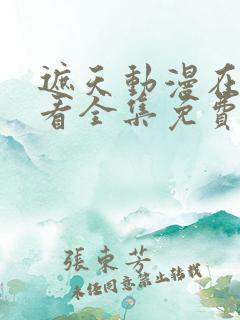 遮天動漫在
看全集免費
張東芳
未经同意禁止转载